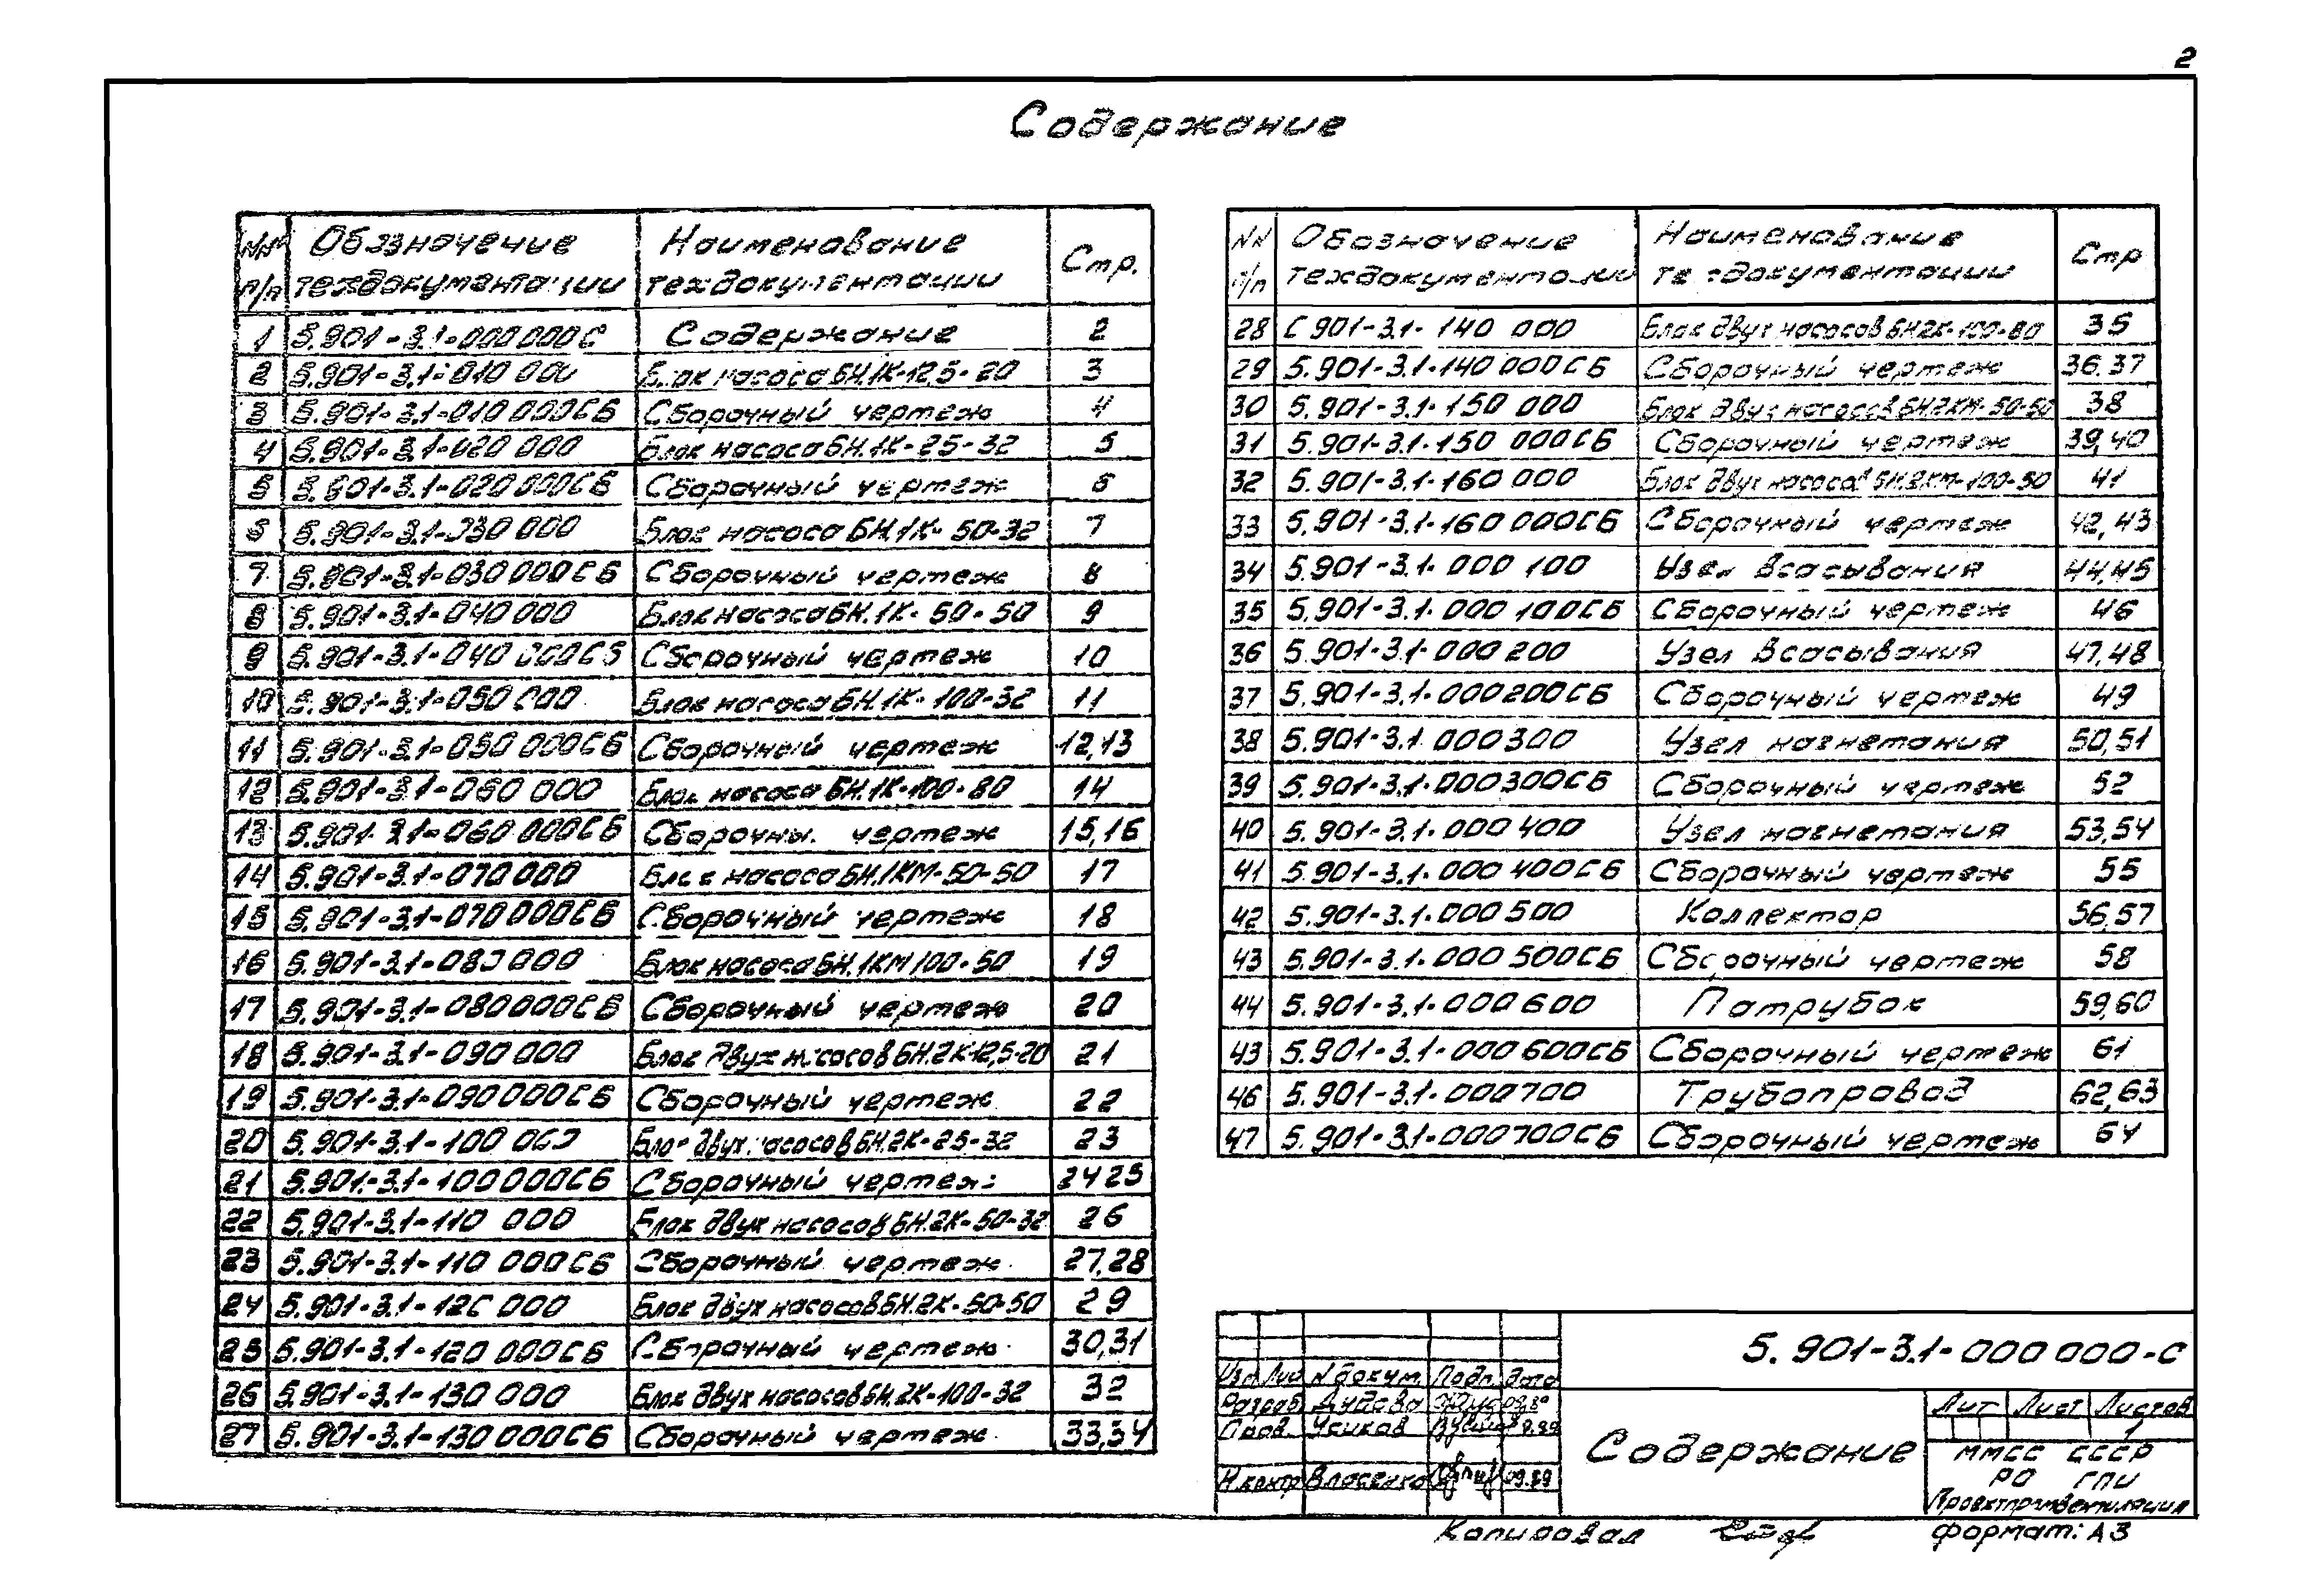 2
Содержание
NN Обозначение Наименование Стр.
п/п техдокументации техдокументации
1 5.901-3.1-000000С Содержание 2
2 5.901-3.1-010 000 Блок насоса БН.1К-12,5-20 3
3 5.901-3.1-010 000СБ Сборочный чертеж 4
4 5.901-3.1-020 000 Блок насоса БН.1К-25-32 5
5 5.901-3.1-020 000СБ Сборочный чертеж 6
6 5.901-3.1-030 000 Блок насоса БН.1К-50-32 7
7 5.901-3.1-030 000СБ Сборочный чертеж 8
8 5.901-3.1-040 000 Блок насоса БН.1К-50-50 9
9 5.901-3.1-040 000СБ Сборочный чертеж 10
10 5.901-3.1-050 000 Блок насоса БН.1К-100-32 11
11 5.901-3.1-050 000СБ Сборочный чертеж 12,13
12 5.901-3.1-060 000 Блок насоса БН.1К-100-80 14
13 5.901-3.1-060 000СБ Сборочны. чертеж 15,16
14 5.901-3.1-070 000 Блок насоса БН.1КМ-50-50 17
15 5.901-3.1-070 000СБ Сборочный чертеж 18
16 5.901-3.1-080 000 Блок насоса БН.1КМ 100-50 19
17 5.901-3.1-080 000СБ Сборочный чертеж 20
18 5.901-3.1-090 000 Блок двух насосов БН.2К-12,5-20 21
19 5.901-3.1-090 000СБ Сборочный чертеж 22
20 5.901-3.1-100 000 Блок двух насосов БН.2К-25-32 23
21 5.901-3.1-100 000СБ Сборочный чертеж 24 25
22 5.901-3.1-110 000 Блок двух насосов БН.2К-50-32 26
23 5.901-3.1-110 000СБ Сборочный чертеж 27,28
24 5.901-3.1-120 000 Блок двух насосов БН.2К-50-50 29
25 5.901-3.1-120 000СБ Сборочный чертеж 30,31
26 5.901-3.1-130 000 Блок двух насосов БН.2К-100-32 32
27 5.901-3.1-130 000СБ Сборочный чертеж 33,34
NN Обозначение Наименование Стр
п/п техдокументации техдокументации
28 С 901-3.1-140 000 Блок двух насосов БН.2К-100-80 35
29 5.901-3.1-140 000СБ Сборочный чертеж 36,37
30 5.901-3.1-150 000 Блок двух насосов БН.2КМ-50-50 38
31 5.901-3.1-150 000СБ Сборочный чертеж 39,40
32 5.901-3.1-160 000 Блок двух насосов БН.2КМ-100-50 41
33 5.901-3.1-160 000СБ Сборочный чертеж 42,43
34 5.901-3.1-000 100 Узел всасывания 44,45
35 5.901-3.1-000 100СБ Сборочный чертеж 46
36 5.901-3.1-000 200 Узел всасывания 47,48
37 5.901-3.1-000 200СБ Сборочный чертеж 49
38 5.901-3.1 000 300 Узел нагнетания 50,51
39 5.901-3.1-000 300СБ Сборочный чертеж 52
40 5.901-3.1-000 400 Узел нагнетания 53,54
41 5.901-3.1-000 400СБ Сборочный чертеж 55
42 5.901-3.1-000 500 Коллектор 56,57
43 5.901-3.1-000 500СБ Сборочный чертеж 58
44 5.901-3.1-000 600 Патрубок 59,60
43 5.901-3.1-000 600СБ Сборочный чертеж 61
46 5.901-3.1-000 700 Трубопровод 62,63
47 5.901-3.1-000 700СБ Сборочный чертеж 64
5.901-3.1-000 000-С
Изм Лис N докум. Подп. Дата
Разраб Дудова
Пров. Усиков 9.89
Н.контр Власенко 09.89
Содержание
Лит Лист Листов
1
ММСС СССР
РО ГПИ
Проектпромвентиляция
Копировал
формат: А3